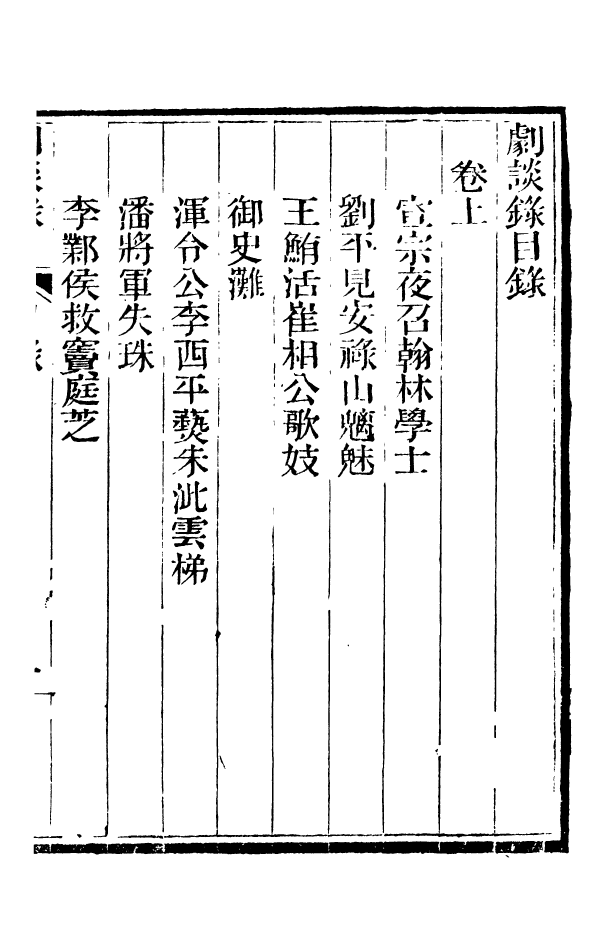 劇談錄目錄
卷上
宣宗夜召翰林學士
劉平見安祿山魑魅
王鮪活崔相公歌妓
御史灘
渾令公李西平爇朱泚雲梯
潘將軍失珠
李鄴侯救竇庭芝